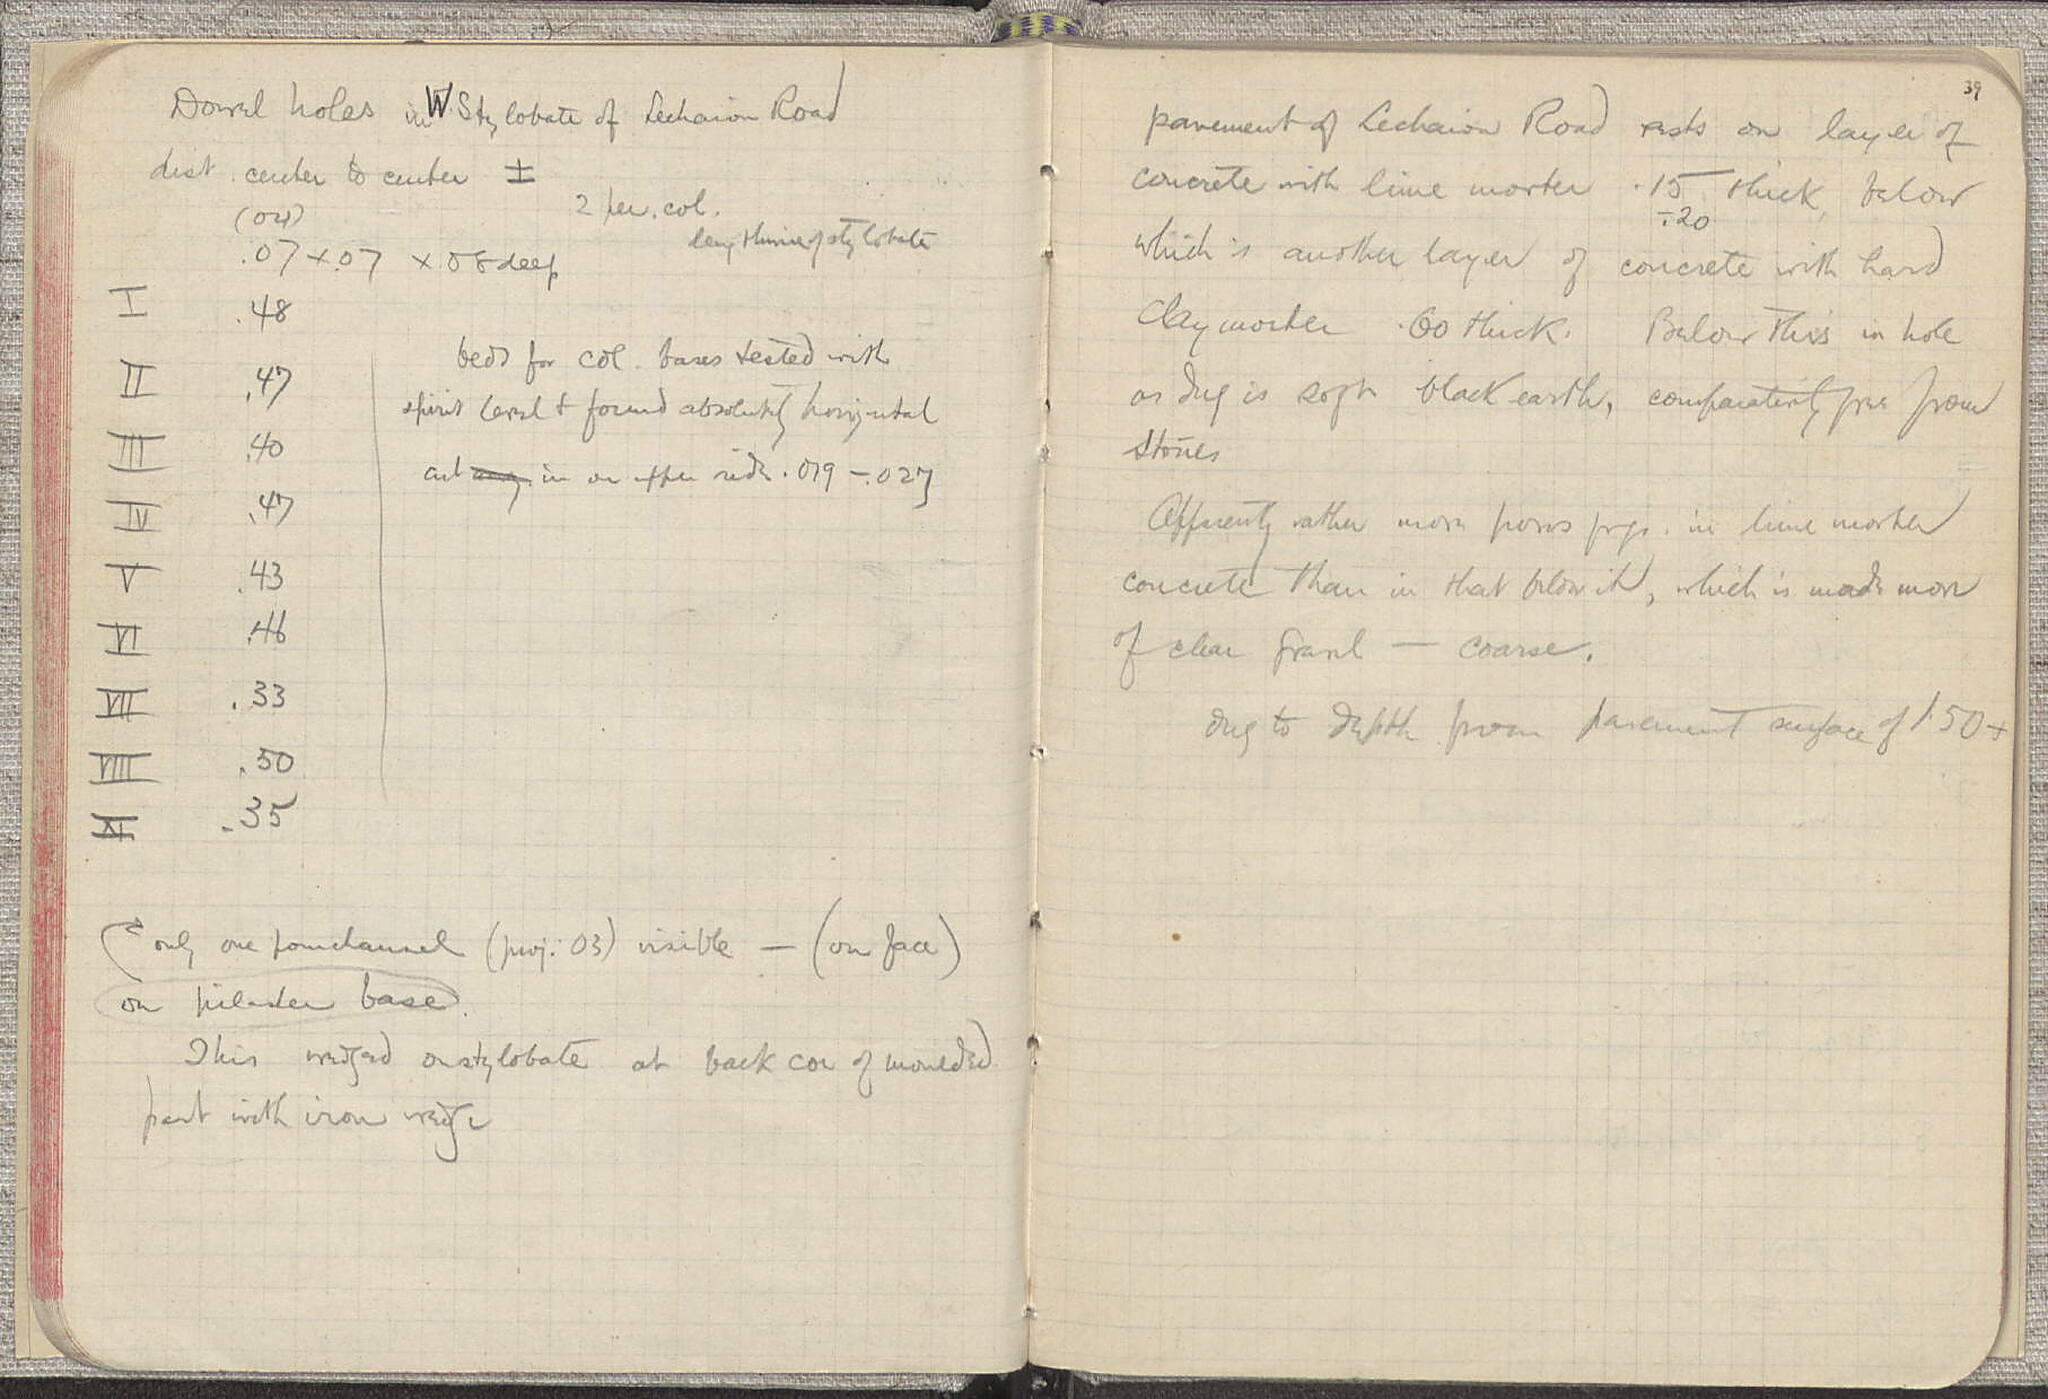 Dowel holes in W. Stylobate of Lechaion Road
dist. center to center ±
2 per. col.
lengthwise of stylobate
.07 x .07 x .08 deep
I .48
II .47
III .40
IV .47
V .43
VI .46
VII .33
VIII .50
.35
beds for col. bases tested with
spirit level & found absolutely horizontal
cut in on upper side .019 – .027
only one (proj. .03) visible — (on face)
on pilaster base.
This wedged on stylobate at back cor of moulded
part with iron wedge
39
pavement of Lechaion Road rests on layer of
concrete with lime morter .15 thick, below
÷20
which is another layer of concrete with hard
Clay morter .60 thick. Below this in hole
as dug is soft black earth, comparatively free from
stones
Apparently rather more poros frgs. in lime morter
concrete than in that below it, which is made more
of clear gravel — coarse.
dug to depth from pavement surface of 1.50 +